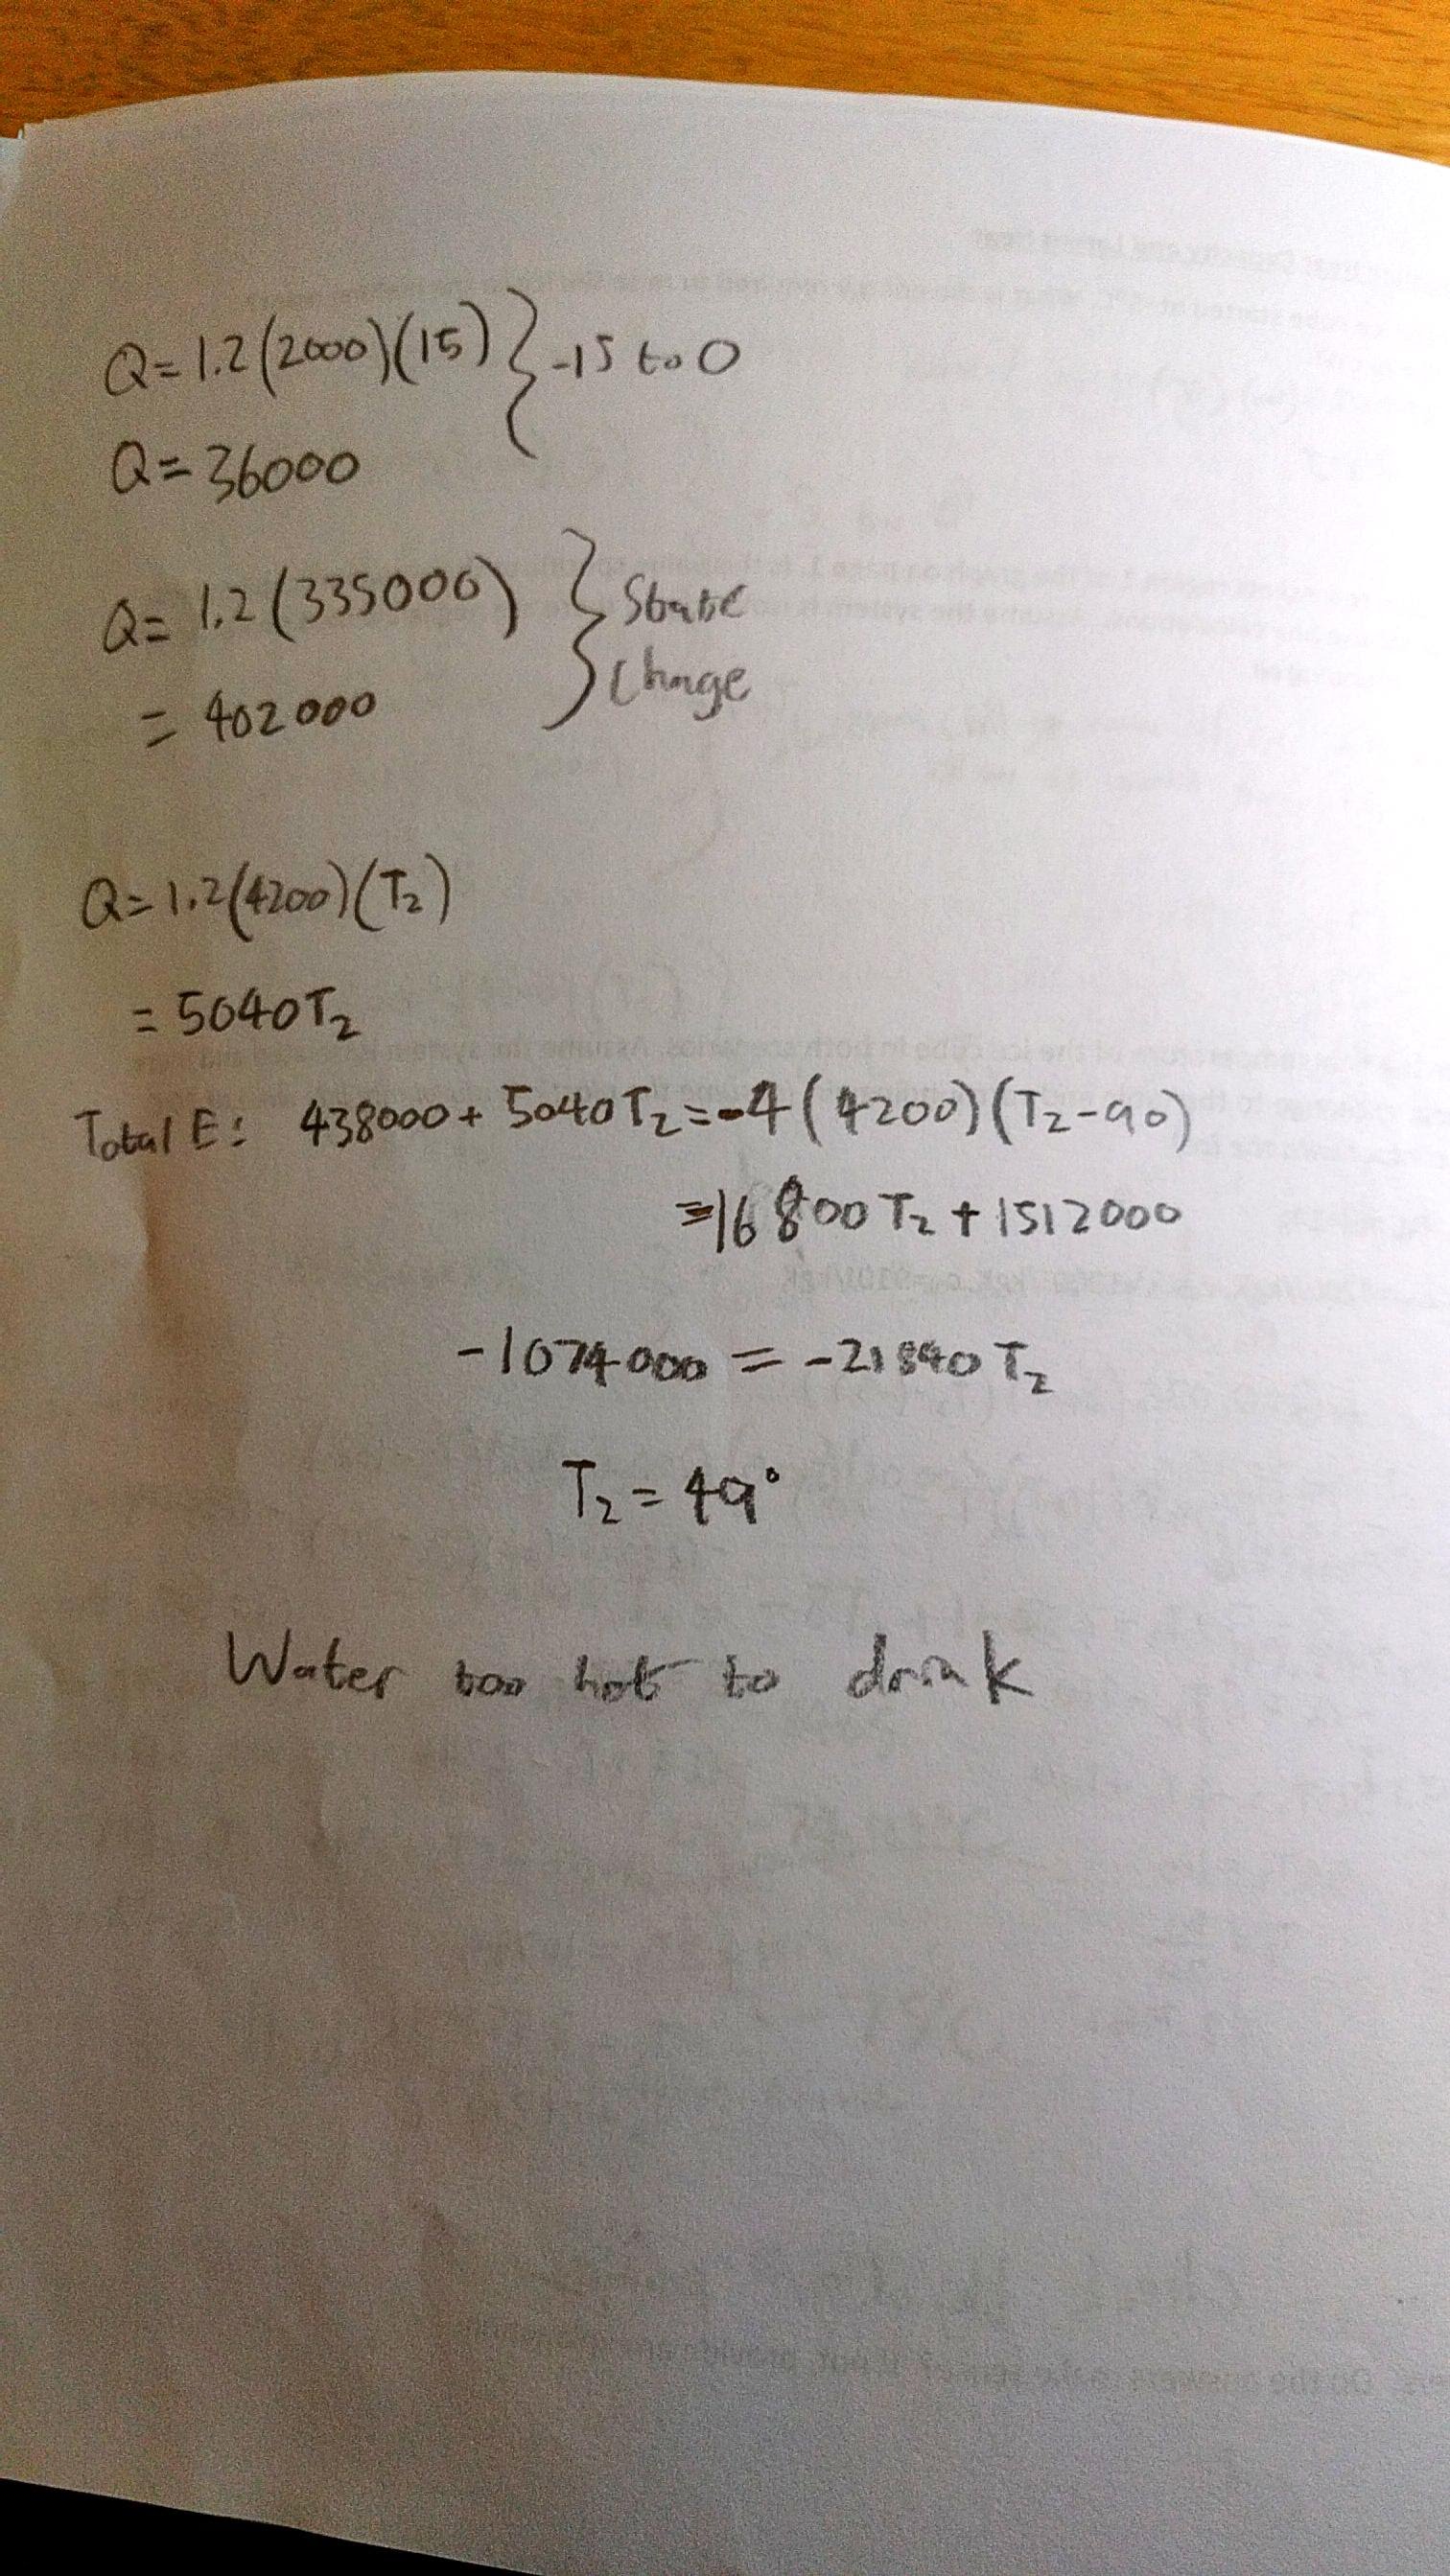 Q=1.2(2000)(15) } -15 to 0
Q=36000
Q= 1.2(335000) } State
Change
= 402000
Q=1.2(4200)(T₂)
= 5040T₂
Total E: 438000+ 5040T₂=-4(4200)(T₂-90)
=-16800T₂+1512000
-1074000 = -21840T₂
T₂=49°
Water too hot to drink